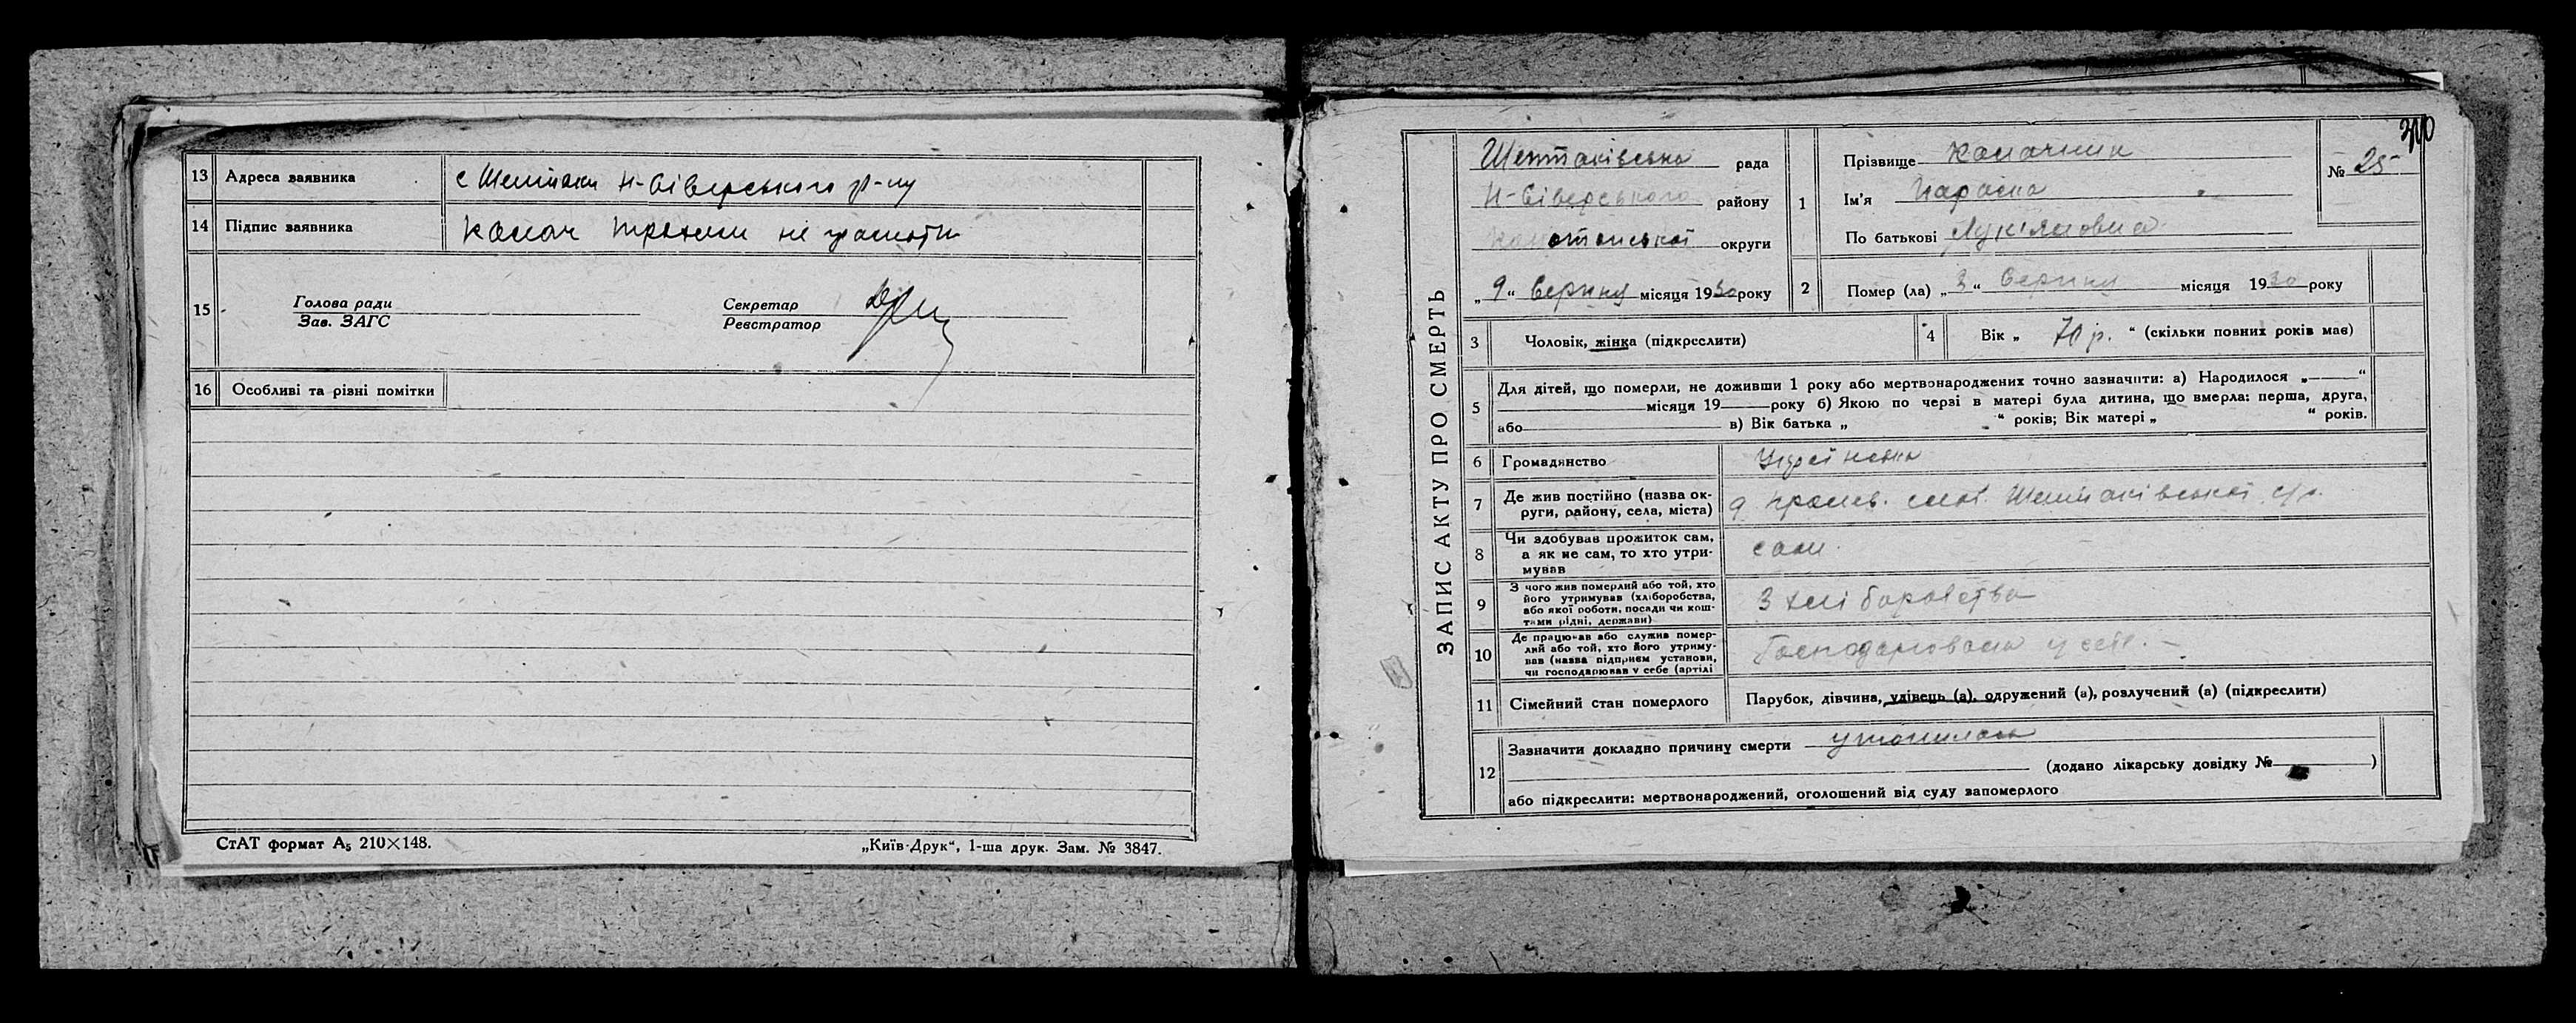 13 Адреса заявника с Шептаки Н-Сіверського р-ну
14 Підпис заявника Калач не грамотн
15 Голова ради
Зав. ЗАГС
Секретар
Реєстратор
16 Особливі та різні помітки
СтАТ формат А5 210×148.
„Київ-Друк“, 1-ша друк. Зам. № 3847.
310
ЗАПИС АКТУ ПРО СМЕРТЬ
Шептаківська рада
Н-Сіверського району
Конотопської округи
„9“ Вересня місяця 1930 року
1 Прізвище
Ім'я Параска
По батькові Лукіяновна
№ 25
2 Помер (ла) „3“ Вересня місяця 1930 року
3 Чоловік, жінка (підкреслити)
4 Вік „ 70 р. “ (скільки повних років мав)
5 Для дітей, що померли, не доживши 1 року або мертвонароджених точно зазначити: а) Народилося „ “
місяця 19 року б) Якою по черзі в матері була дитина, що вмерла: перша, друга,
або в) Вік батька „ “ років; Вік матері „ “ років.
6 Громадянство Українка
7 Де жив постійно (назва ок-
руги, району, села, міста) Шептаківської с/р.
8 Чи здобував прожиток сам,
а як не сам, то хто утри-
мував сам.
9 З чого жив померлий або той, хто
його утримував (хліборобства,
або якої роботи, посади чи кош-
тами рідні, держави) З хліборобства
10 Де працював або служив помер-
лий або той, хто його утриму-
вав (назва підприєм установи,
чи господарював у себе (артілі Господарювала у себе. –
11 Сімейний стан померлого Парубок, дівчина, удівець (а), одружений (а), розлучений (а) (підкреслити)
12 Зазначити докладно причину смерти утопилась
(додано лікарську довідку № )
або підкреслити: мертвонароджений, оголошений від суду запомерлого